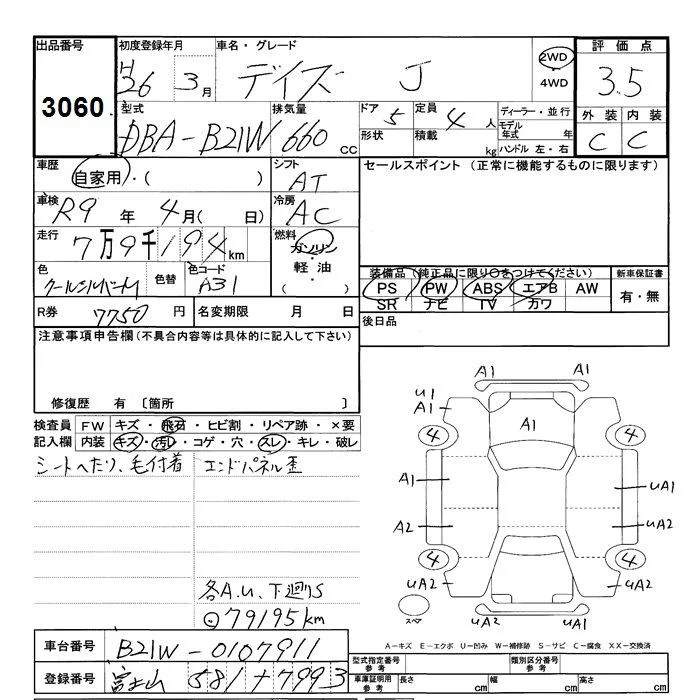 出品番号 初度登録年月 車名・グレード 評価点
3060 H26 3月 デイズ J 2WD 4WD 3.5
型式 排気量 ドア 定員 ディーラー・並行 外装 内装
DBA-B21W 660 CC 5 4人 モデル年式 年 C C
形状 積載 kg ハンドル 左・右
車歴 自家用・( ) シフト AT セールスポイント (正常に機能するものに限ります)
車検 R9年 4月( 日) 冷房 AC
走行 7万9千194km 燃料 ガソリン・軽油・( )
色 クールシルバーM 色替 色コード A31
装備品 (純正品に限り○をつけてください) 新車保証書
PS PW ABS エアB AW 有・無
SR ナビ TV カワ
R券 7750円 名変期限 月 日 後日品
注意事項申告欄 (不具合内容等は具体的に記入して下さい)
修復歴 有 〔箇所 〕
検査員 FW キズ・飛石・ヒビ割・リペア跡・×要
記入欄 内装 キズ・汚レ・コゲ・穴・スレ・キレ・破レ
シートヘたり、毛付着 エンドパネル歪
各A.U、下廻りS
79195km
A1
A1
U1
A1
A1
4 4
A1 UA1
A2 UA2
4 4
UA2 UA2
UA2 UA1
スペア
A-キズ E-エクボ U-凹み W-補修跡 S-サビ C-腐食 XX-交換済
車台番号 B21W-0107911 型式指定番号 参考 類別区分番号 参考
登録番号 富士山 581 + 7993 車庫証明用 参考 長さ cm 幅 cm 高さ cm